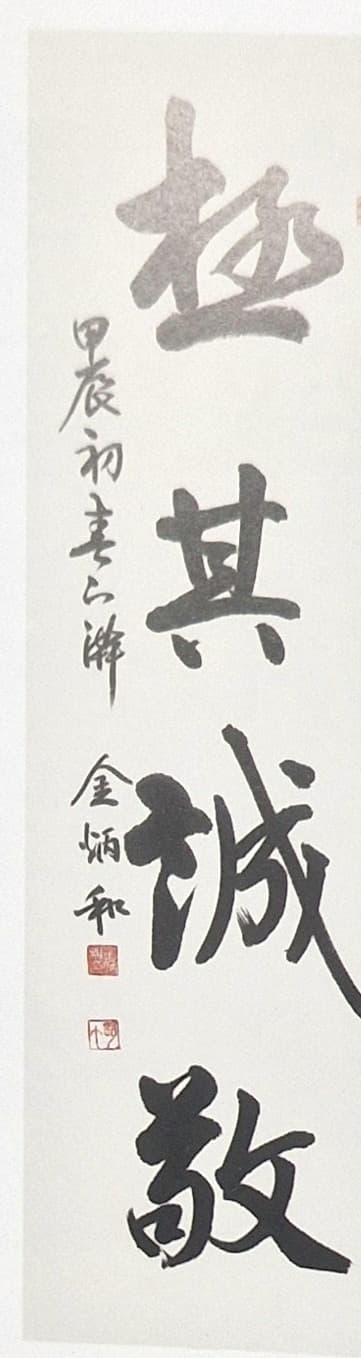 極其誠敬
甲辰初春之澣 金炳和